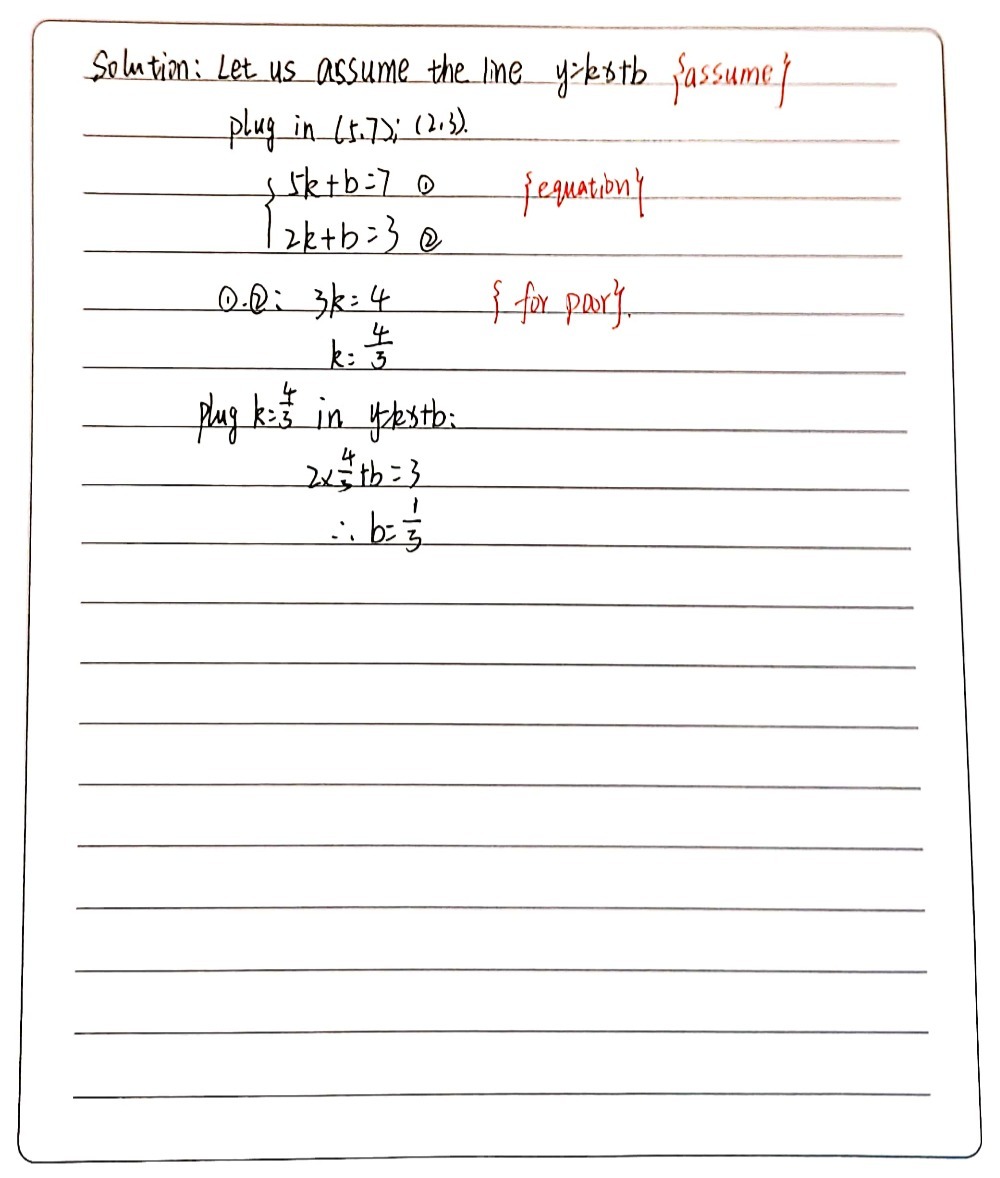 Solution: Let us assume the line y=kx+b {assume}
plug in (5.7); (2,3).
{ 5k+b=7 ① {equation}
2k+b=3 ②
①.②: 3k=4 { for poor}.
k=4/3
plug k=4/3 in y=kx+b:
2×4/3+b=3
∴ b=1/3